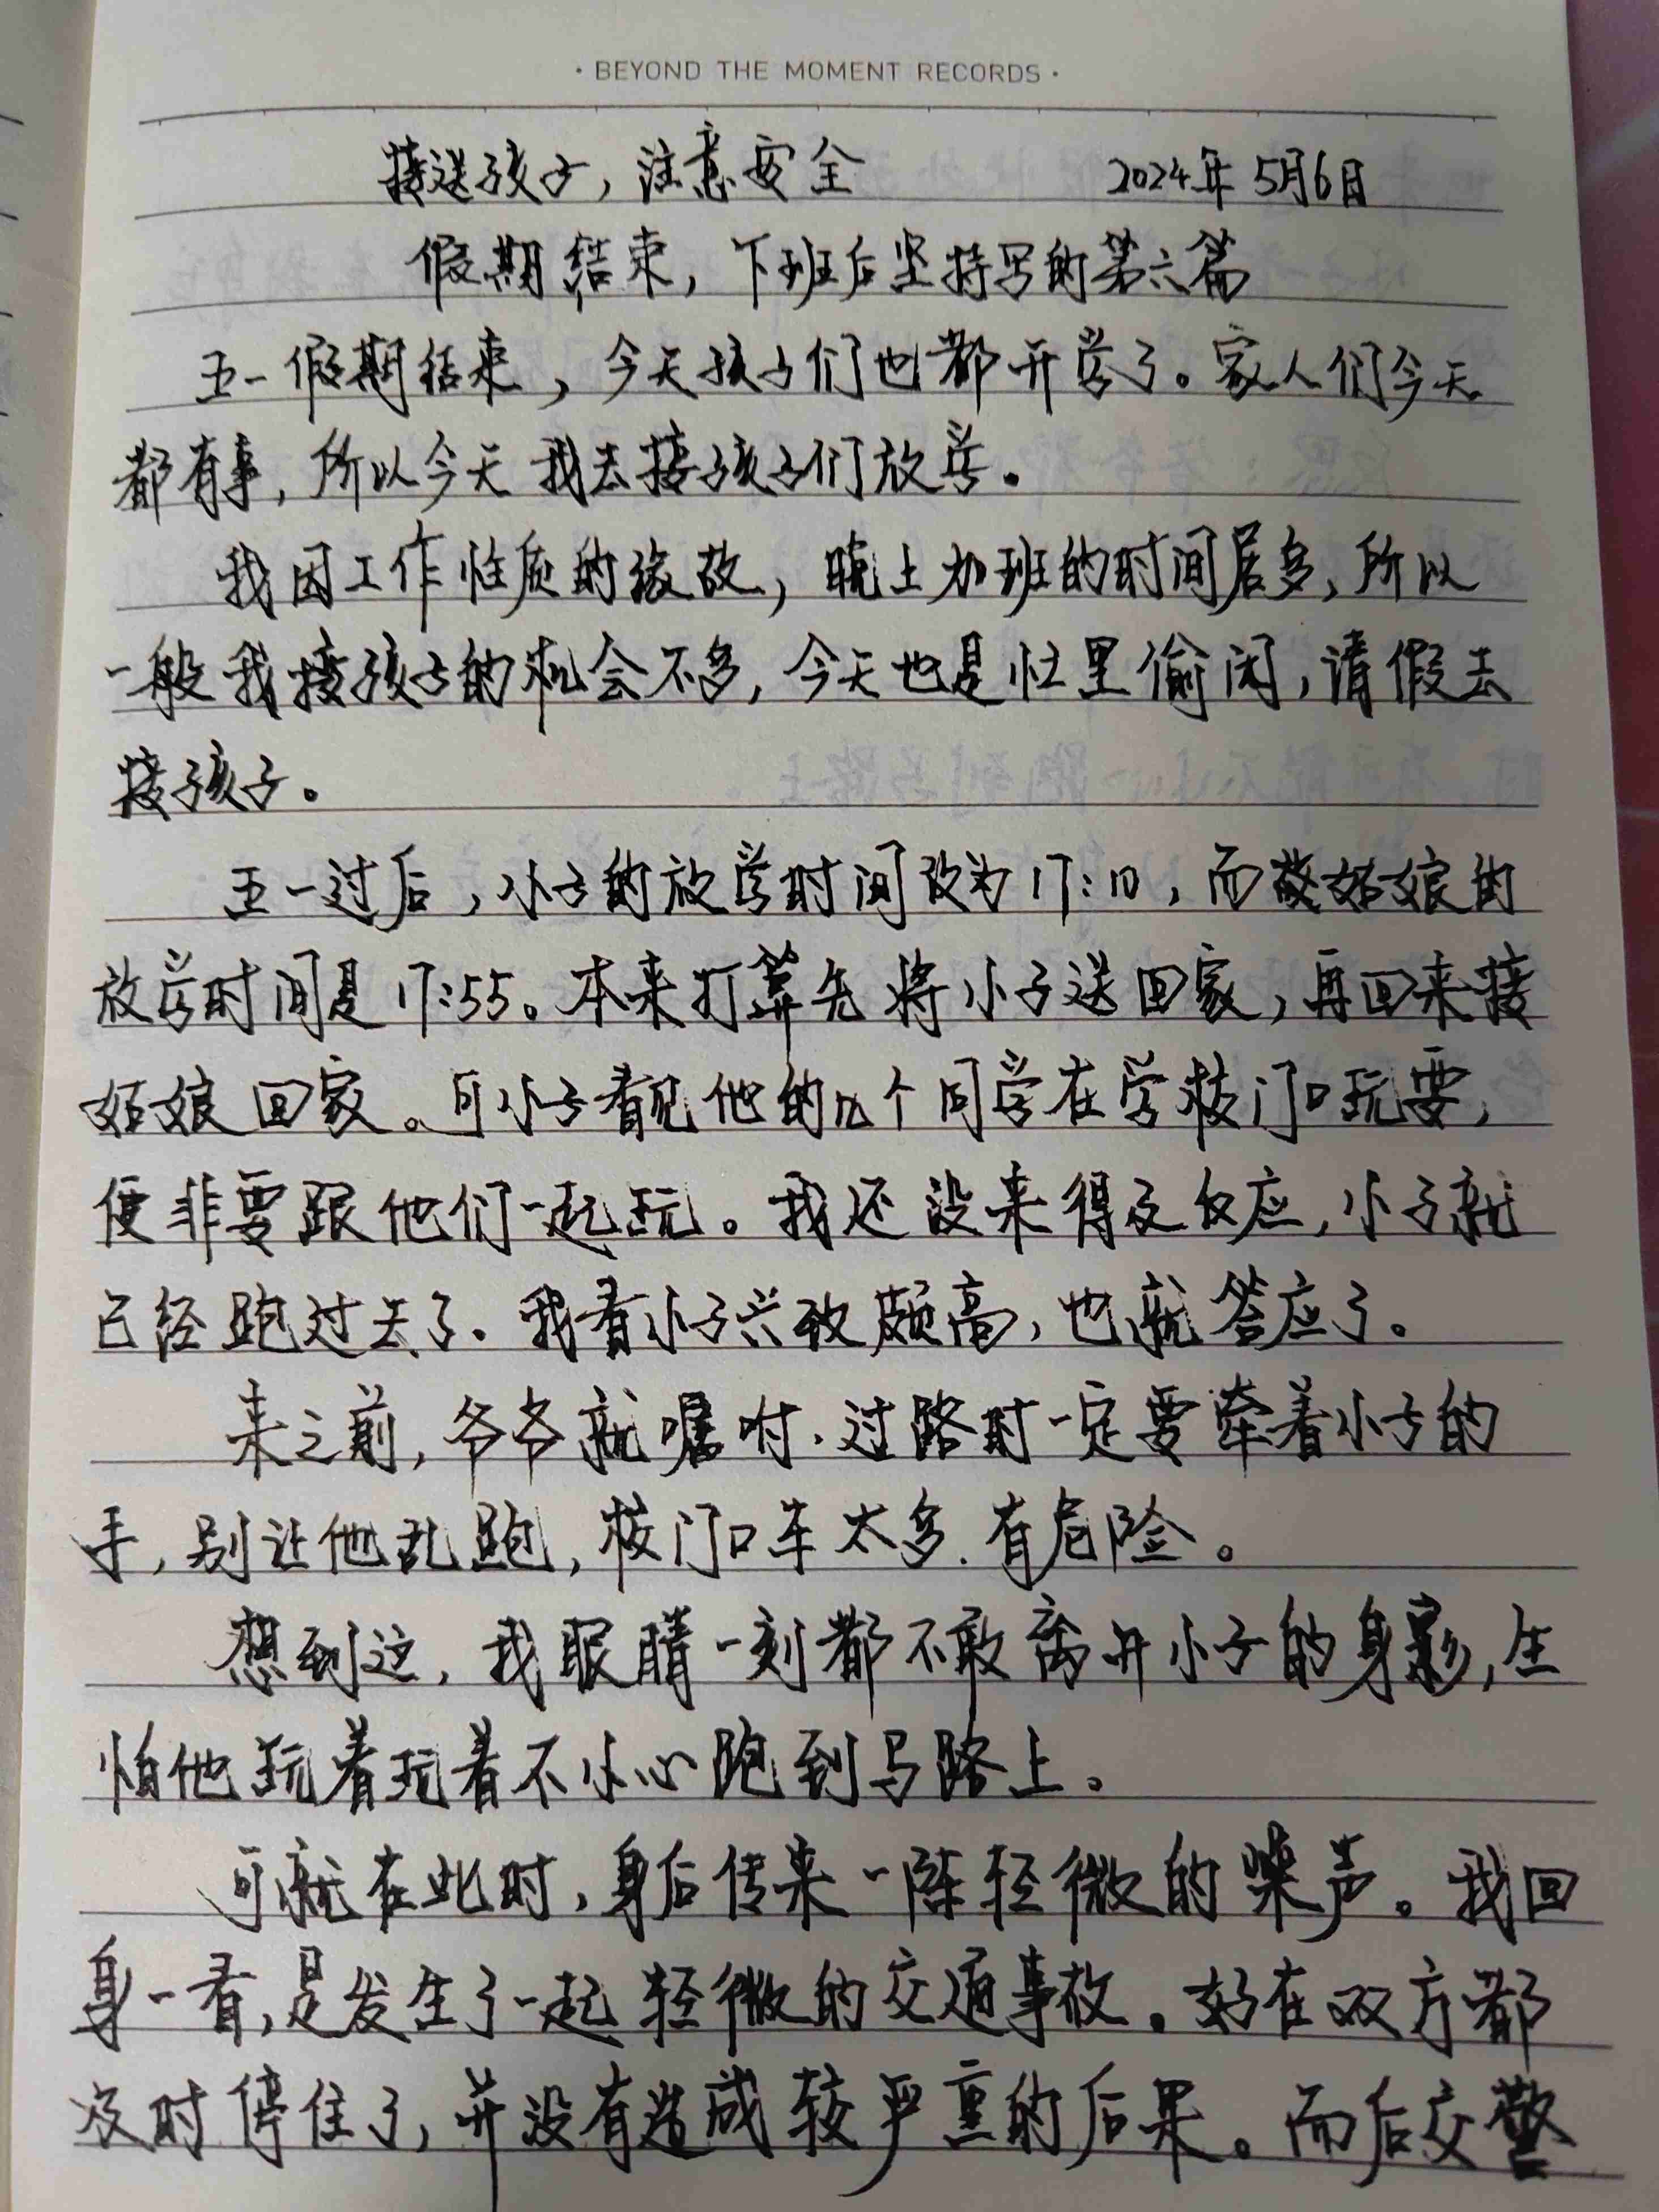 · BEYOND THE MOMENT RECORDS ·
接送孩子，注意安全 2024年5月6日
假期结束，下班后坚持写的第六篇
五一假期结束，今天孩子们也都开学了。家人们今天
都有事，所以今天我去接孩子们放学。
我因工作性质的缘故，晚上加班的时间居多，所以
一般我接孩子的机会不多，今天也是忙里偷闲，请假去
接孩子。
五一过后，小子的放学时间改为17:10，而姑娘的
放学时间是17:55。本来打算先将小子送回家，再回来接
姑娘回家。可小子看见他的几个同学在学校门口玩耍，
便非要跟他们一起玩。我还没来得及反应，小子就
已经跑过去了。我看小子兴致颇高，也就答应了。
来之前，爷爷就嘱咐，过路时一定要牵着小子的
手，别让他乱跑，校门口车太多，有危险。
想到这，我眼睛一刻都不敢离开小子的身影，生
怕他玩着玩着不小心跑到马路上。
可就在此时，身后传来一阵轻微的噪声。我回
身一看，是发生了一起轻微的交通事故。好在双方都
及时停住了，并没有造成较严重的后果。而后交警